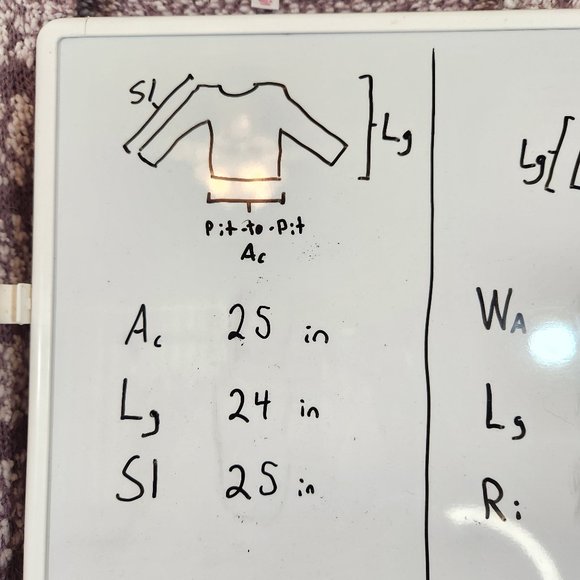 Sl
Lg
Pit-to-Pit
Ac
Ac 25 in
Lg 24 in
Sl 25 in
Lg
WA
Lg
Ri